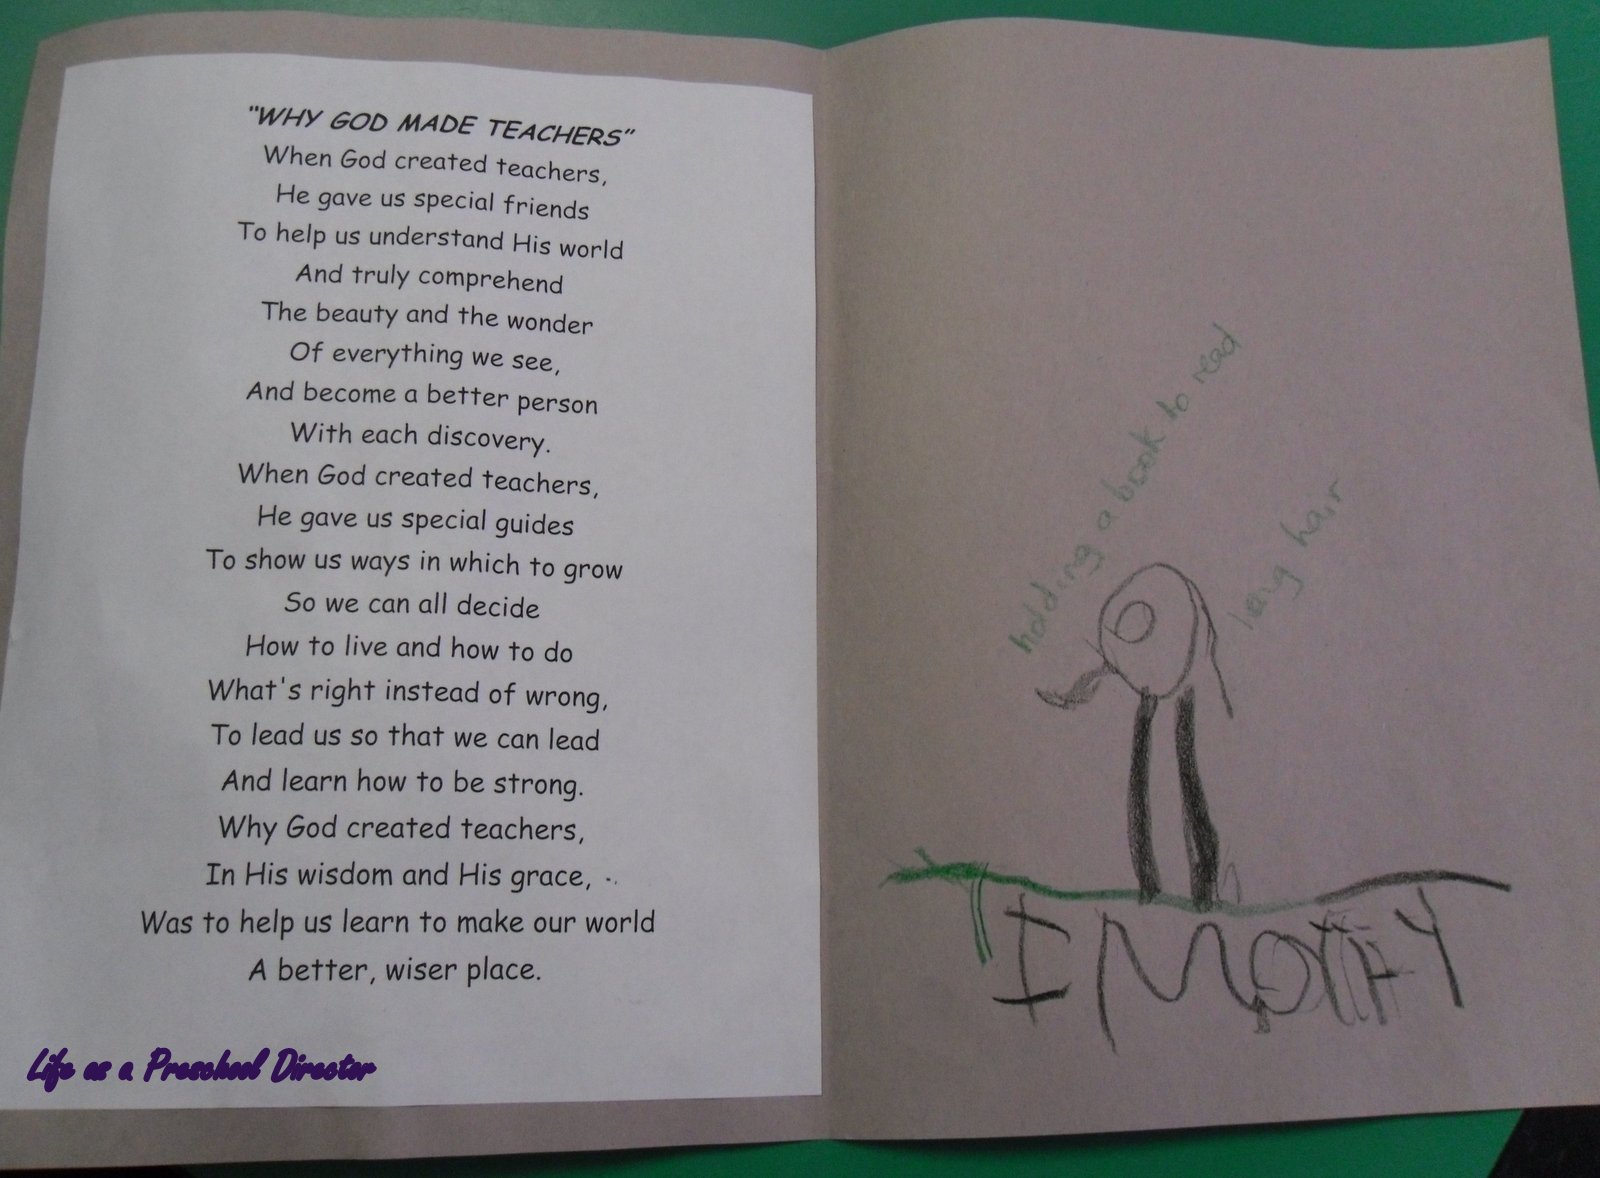 "WHY GOD MADE TEACHERS"
When God created teachers,
He gave us special friends
To help us understand His world
And truly comprehend
The beauty and the wonder
Of everything we see,
And become a better person
With each discovery.
When God created teachers,
He gave us special guides
To show us ways in which to grow
So we can all decide
How to live and how to do
What's right instead of wrong,
To lead us so that we can lead
And learn how to be strong.
Why God created teachers,
In His wisdom and His grace,
Was to help us learn to make our world
A better, wiser place.
Life as a Preschool Director
holding a book to read
long hair